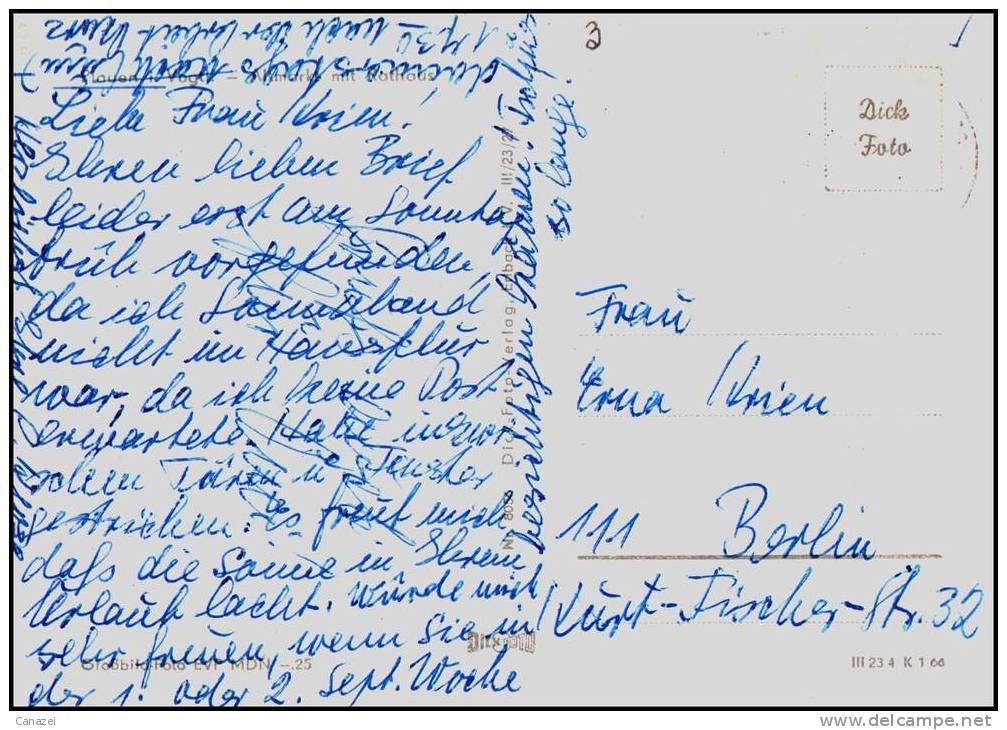 Plauen i. Vogtl. — Altmarkt mit Rathaus
Liebe Frau Krien!
Ihren lieben Brief
leider erst am Sonntag
früh vorgefunden,
da ich Sonnabend
nicht im Hausflur
war, da ich keine Post
erwartete. Hatte inzwi-
schen Türen u. Fenster
gestrichen. Es freut mich
daß die Sonne in Ihrem
Urlaub lacht. Würde mich
sehr freuen, wenn Sie in
der 1. oder 2. Sept. Woche
1730 nach der Arbeit
so lange!
Dick-Foto-Verlag, Erlbach i. V. III/23/21
Dick
Foto
Großbild-Foto EVP MDN —.25
3
Dick
Foto
Frau
Erna Krien
111 Berlin
Kurt-Fischer-Str. 32
III 23 4 K 1 66
Canazei
www.delcampe.net